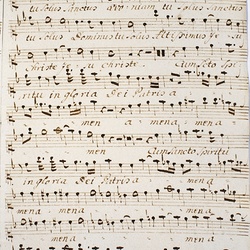 tu solus Sanctus quoniam tu solus
tu solus Dominus tu solus Altissimus Je su
Christe Je su Christe Cum Sancto Spi
ritu in gloria Dei Patris a
men a men a men a
men Cum Sancto Spiritu
in gloria Dei Patris a
men a men a men a
men a men a